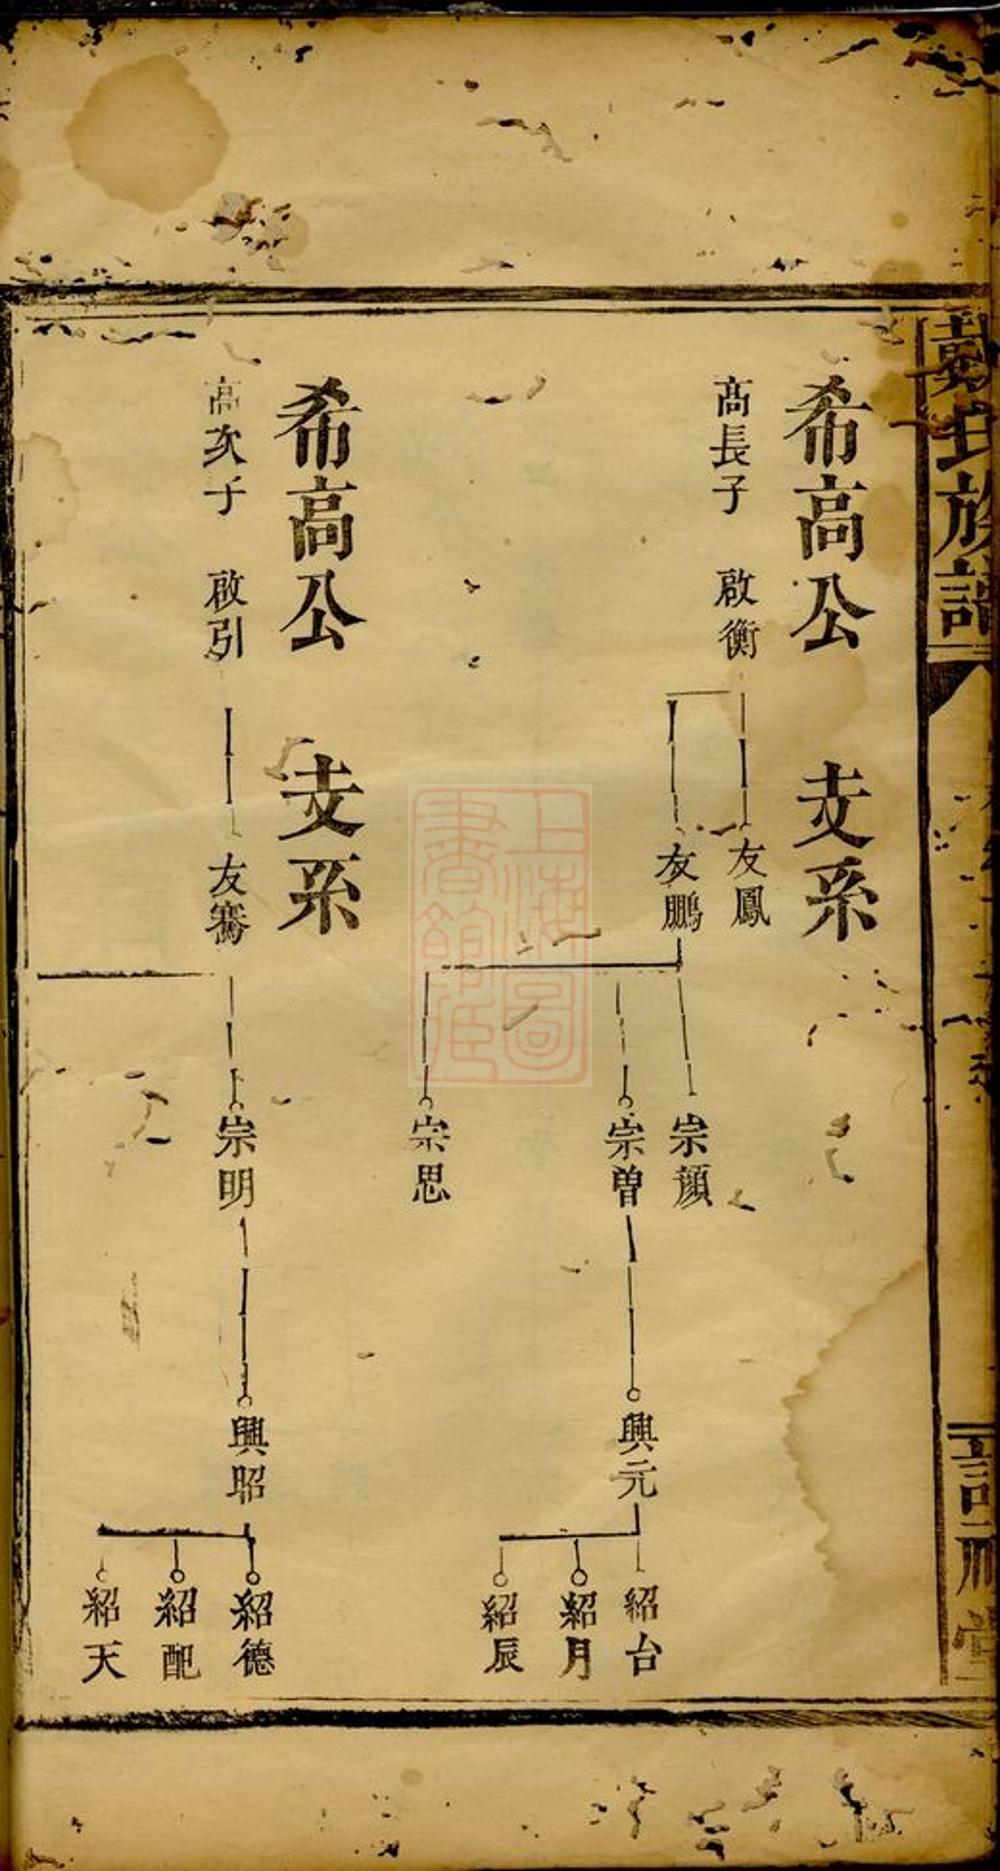 戴氏族譜
希高公 支系
高長子 啟衡
友鳳
友鵬
宗顏
宗曽
宗思
興元
紹台
紹月
紹辰
希高公 支系
高次子 啟引
友騫
宗明
興昭
紹德
紹配
紹天
上海圖書館藏